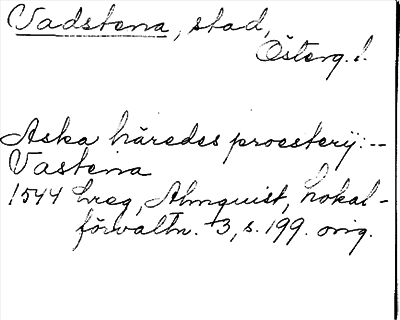 Vadstena, stad,
Österg. l.
Aska häredes proesterij: --
Vastena
1544 Lreg, Almquist, Lokal-
förvaltn. I 3, s. 199. orig.